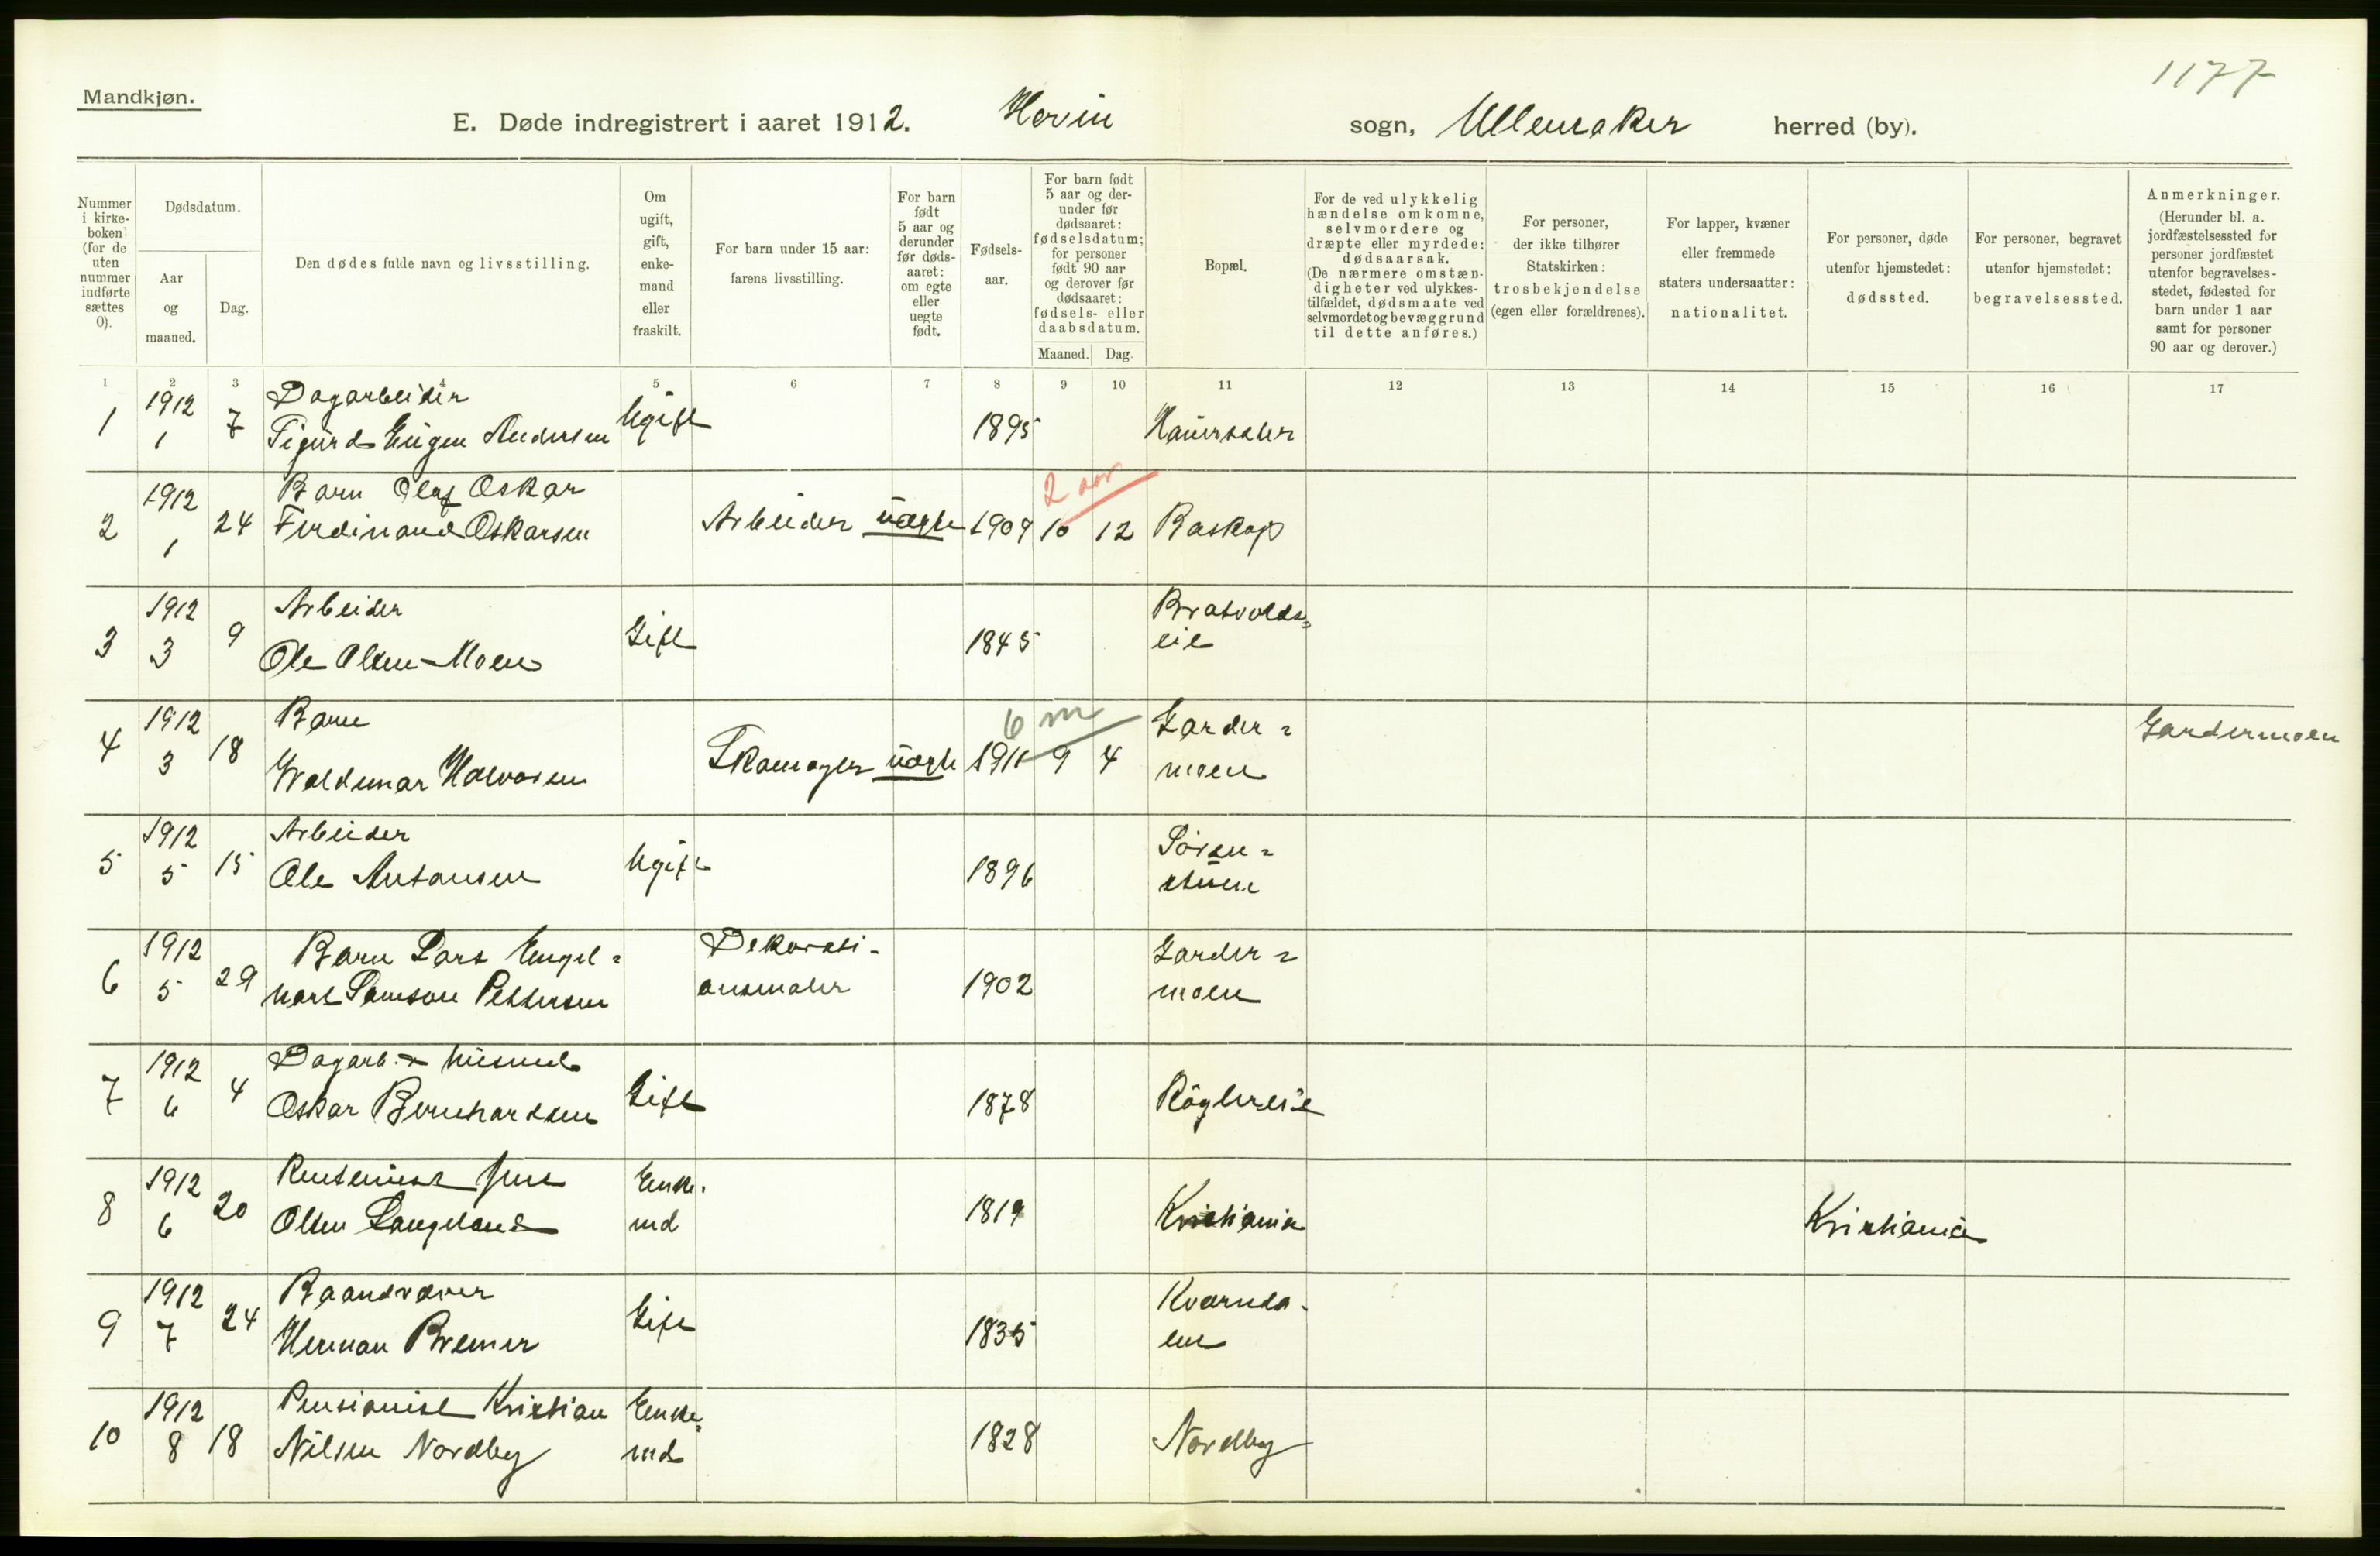 1177
Mandkjøn.
E. Døde indregistrert i aaret 1912. Hovin sogn, Ullensaker herred (by).
Nummer i kirke-boken (for de uten nummer indførte sættes 0).
Dødsdatum.
Aar og maaned.
Dag.
Den dødes fulde navn og livsstilling.
Om ugift, gift, enke-mand eller fraskilt.
For barn under 15 aar: farens livsstilling.
For barn født 5 aar og derunder før døds-aaret: om egte eller uegte født.
Fødsels-aar.
For barn født 5 aar og der-under før dødsaaret: fødselsdatum; for personer født 90 aar og derover før dødsaaret: fødsels- eller daabsdatum.
Maaned.
Dag.
Bopæl.
For de ved ulykkelig hændelse omkomne, selvmordere og dræpte eller myrdede: dødsaarsak. (De nærmere omstæn-digheter ved ulykkes-tilfældet, dødsmaate ved selvmordet og bevæggrund til dette anføres.)
For personer, der ikke tilhører Statskirken: trosbekjendelse (egen eller forældrenes).
For lapper, kvæner eller fremmede staters undersaatter: nationalitet.
For personer, døde utenfor hjemstedet: dødssted.
For personer, begravet utenfor hjemstedet: begravelsessted.
Anmerkninger. (Herunder bl. a. jordfæstelsessted for personer jordfæstet utenfor begravelses-stedet, fødested for barn under 1 aar samt for personer 90 aar og derover.)
1 2 3 4 5 6 7 8 9 10 11 12 13 14 15 16 17
1912 Dagarbeider
1 1 7 Sigurd Eugen Andersen Ugift 1895
1912 Barn Olaf Oskar 2 aar
2 1 24 Ferdinand Oskarsen Arbeider uægte 1909 10 12 Raskop
1912 Arbeider Bratvolds=
3 3 9 Ole Olsen Moen Gift 1845 eie
1912 Barn 6 m Garder=
4 3 18 Valdemar Halvorsen Skomager uægte 1911 9 4 moen Gardermoen
1912 Arbeider Sören=
5 5 15 Ole Antonsen Ugift 1896 stuen
1912 Barn Lars Engel= Dekorati- Garder=
6 5 29 hart Samson Pettersen onsmaler 1902 moen
1912 Dagarb. + husmd
7 6 4 Oskar Bernhardsen Gift 1878 Röglereie
1912 Jens Enke-
8 6 20 Olsen Langeland md 1819 Kristiania Kristiania
1912 Baandvæver Kvernda-
9 7 24 Herman Bremer Gift 1835 len
1912 Pensionist Kristian Enke=
10 8 18 Nilsen Nordby md 1828 Nordby